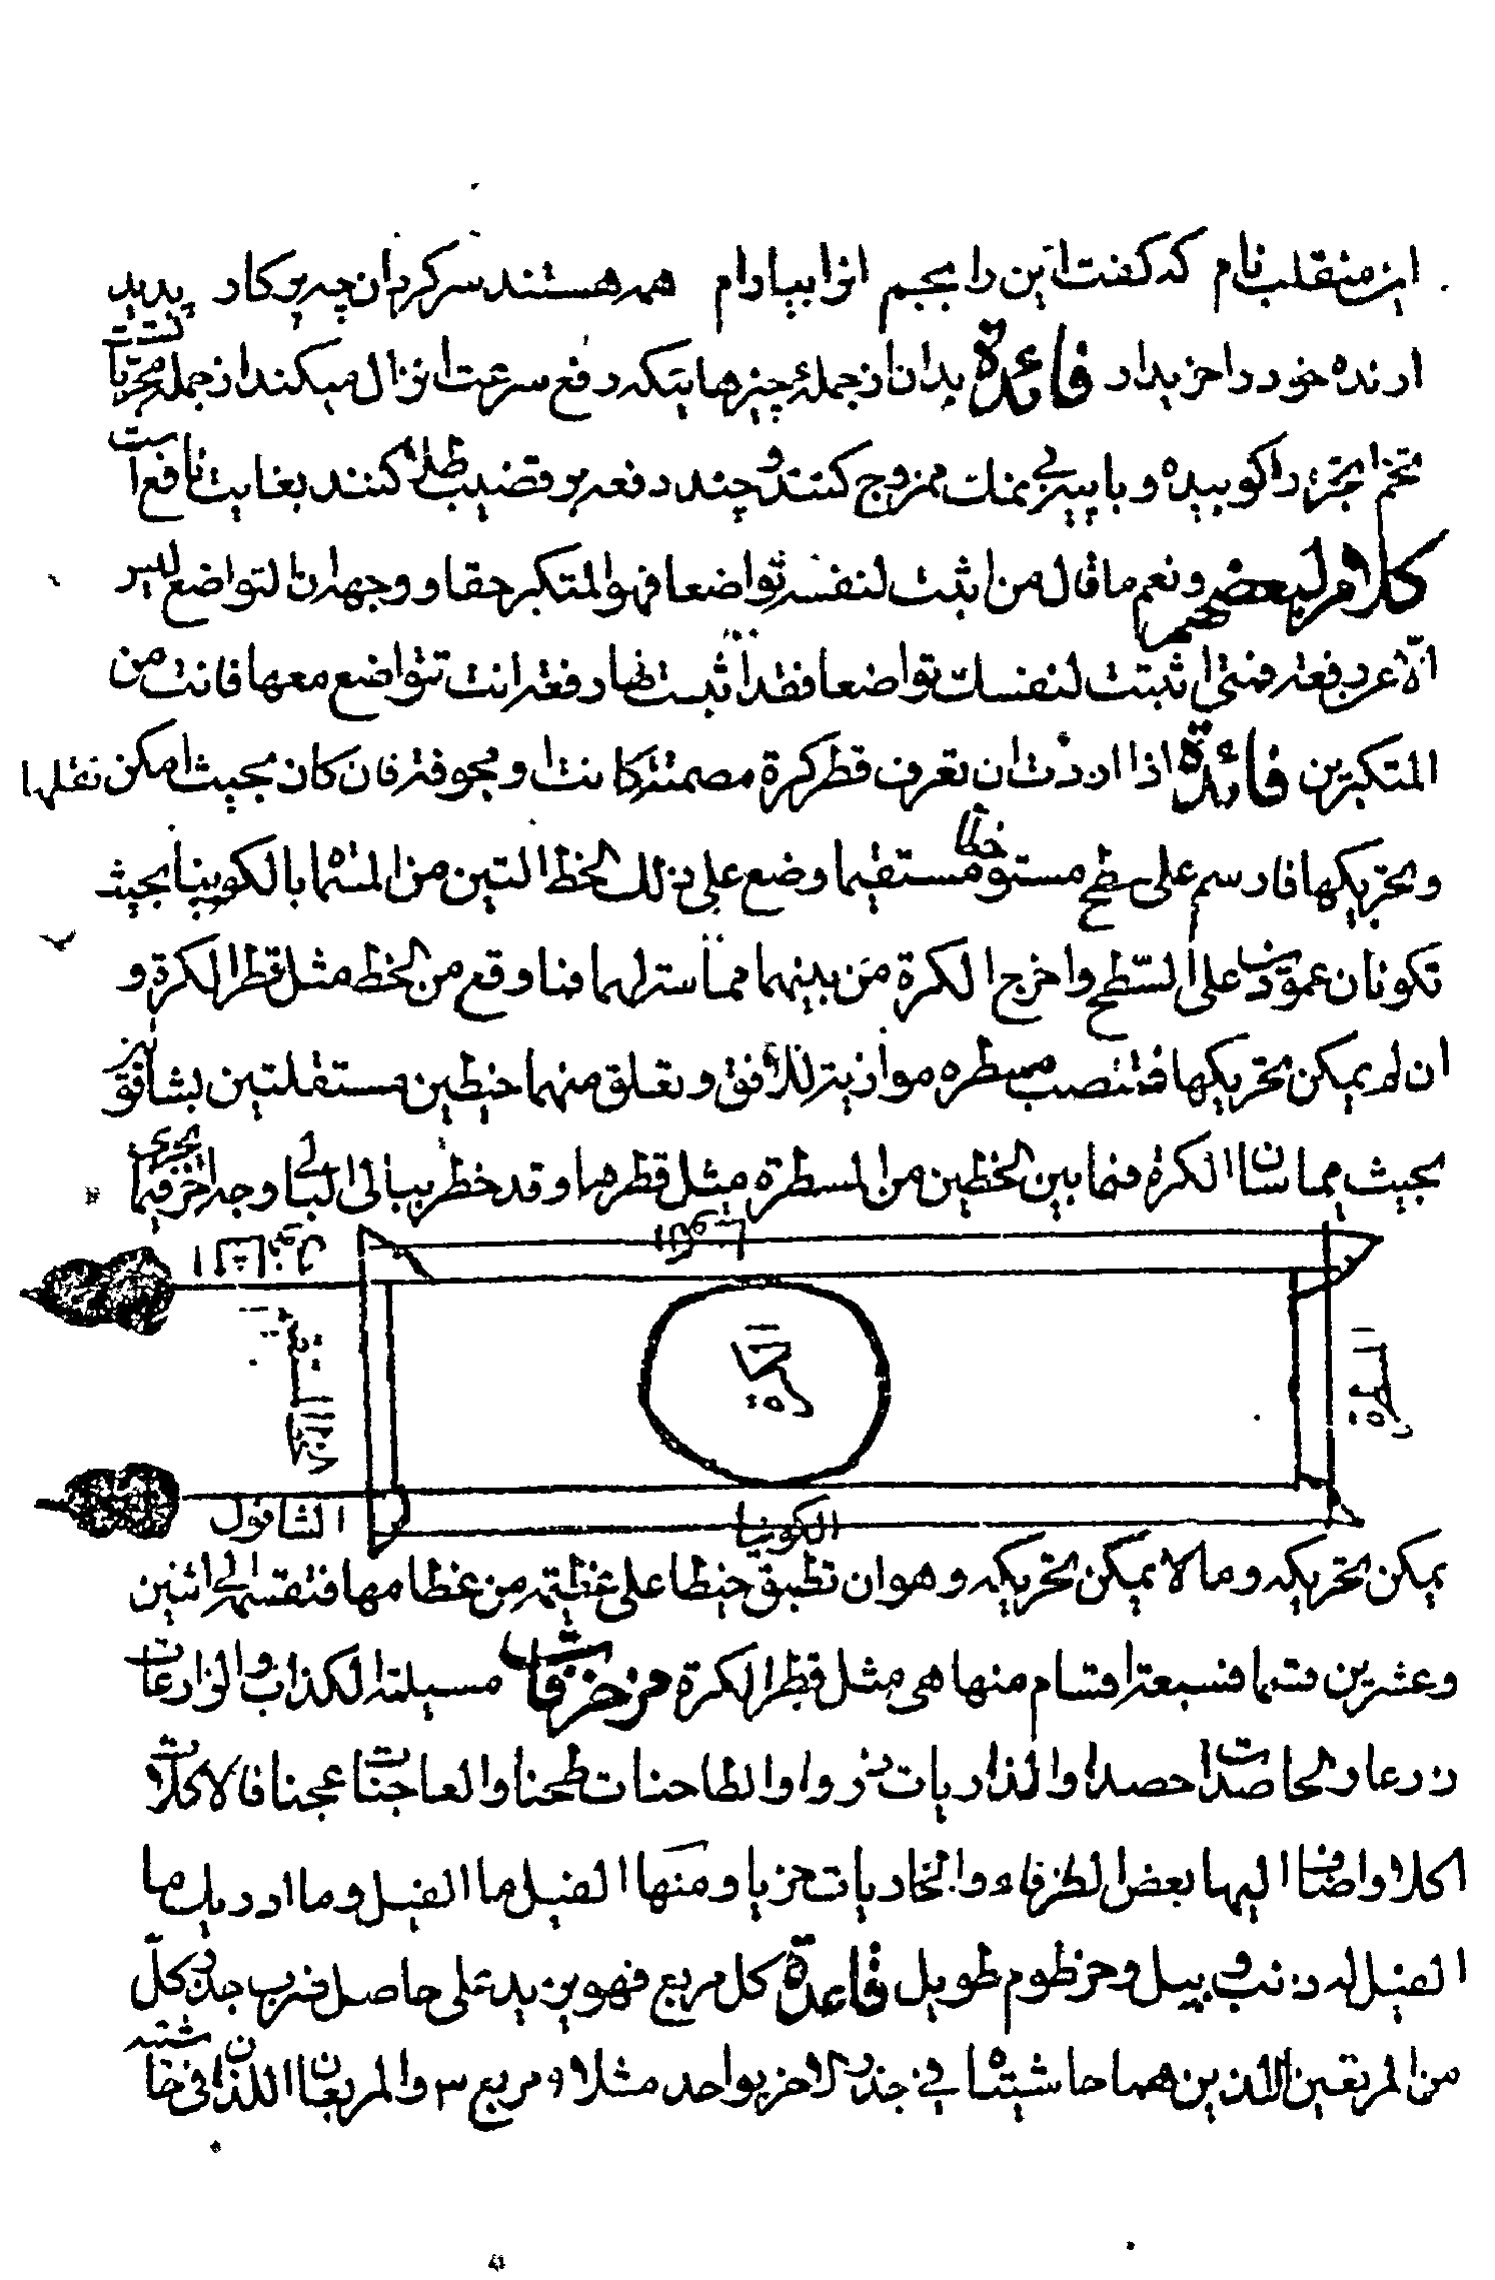 این منقلب نام که گفت این را بجم انرا بیارام همه هستند سرگردان چه پرگار پدید
ارنده خود را خریدار فائدة بدان از جملهٔ چیزهاییکه دفع سرعت انزال میکند از جمله مجرّبات
تخم انجره را کوبیده و با پیر بی نمک ممزوج کنند و چند دفعه بر قضیب طلا کنند بغایت نافع است
كلام لبعضهم ونعم ما قال من اثبت لنفسه تواضعا فهو المتكبر حقا ووجهه ان التواضع ليس
الا عن رفعة فمتى اثبتت لنفسك تواضعا فقد اثبت لها رفعة انت تتواضع معها فانت من
المتكبرين فائدة اذا اردت ان تعرف قطر كرة مصمتة كانت او مجوفة فان كان بحيث امكن نقلها
وتحريكها فارسم على سطح مستو خطا مستقيما وضع على ذلك الخط التين من المسماة بالكونيا بحيث
تكونان عمودين على السطح واخرج الكرة من بينهما مماسة لهما فما وقع من الخط مثل قطر الكرة و
ان لم يمكن تحريكها فتنصب مسطره موازية للافق وتعلق منهما خيطين مستقلتين بشاقولين
بحيث يماسان الكرة فما بين الخطين من المسطرة مثل قطرها وقد خطر ببالي البالي وجه اخر فيما يجري
الشاقول
المسطرة
الكونيا
الكرة
الشاقول
الكونيا
يمكن تحريكه وما لا يمكن تحريكه وهو ان تطبق خيطا على عظيمه من عظامها فتقسمه الى اثنين
وعشرين قسما فسبعة اقسام منها هي مثل قطر الكرة مزخرفات مسيلمة الكذاب والزارعات
زرعا والحاصدات حصدا والذاريات ذروا والطاحنات طحنا والعاجنات عجنا فالاكلات
اكلا واضاف اليها بعض الظرفاء والخاريات خريا ومنها الفيل ما الفيل وما ادريك ما
الفيل له ذنب وبيل وخرطوم طويل قاعدة كل مربع فهو يزيد على حاصل ضرب جذر كل
من المربعين اللذين هما حاشيتاه في جذر الاخر بواحد مثلا ٩ مربع ٣ والمربعان اللذان في حاشيته